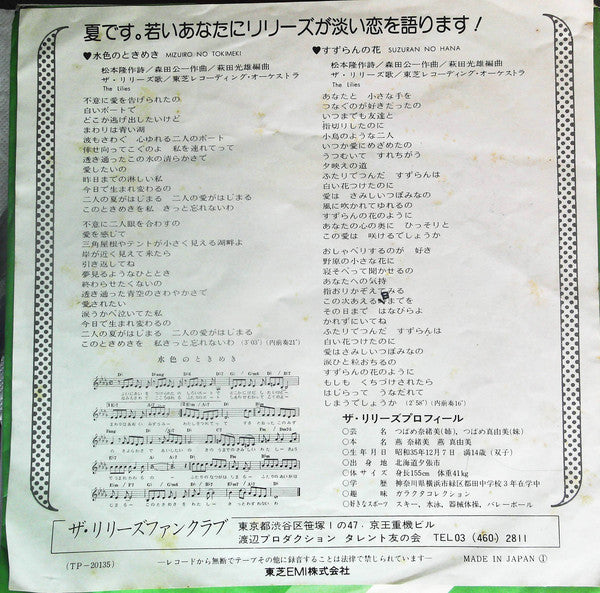 夏です。若いあなたにリリーズが淡い恋を語ります!
♥水色のときめき MIZUIRO NO TOKIMEKI
松本隆作詩/森田公一作曲/萩田光雄編曲
ザ・リリーズ歌/東芝レコーディング・オーケストラ
The Lilies
不意に愛を告げられたの
白いボートで
どこか逃げ出したいけど
まわりは青い湖
波もさわぐ 心ゆれる二人のボート
倖せ向ってこぐのよ 私を連れてって
透き通ったこの水の清らかさで
愛したいの
昨日までの淋しい私
今日で生まれ変わるの
二人の夏がはじまる 二人の愛がはじまる
このときめきを私 きっと忘れないわ
不意に二人眼を合わすの
愛を感じて
三角屋根やテントが小さく見える湖畔よ
岸が近く見えて来たら
引き返してね
夢見るようなひととき
終わらせたくないの
透き通った青空のさわやかさで
愛されたい
涙うかべ泣いてた私
今日で生まれ変わるの
二人の夏がはじまる 二人の愛がはじまる
このときめきを私 きっと忘れないわ (3′03″)(内前奏21″)
水色のときめき
♥すずらんの花 SUZURAN NO HANA
松本隆作詩/森田公一作曲/萩田光雄編曲
ザ・リリーズ歌/東芝レコーディング・オーケストラ
The Lilies
あなたと 小さな手を
つなぐのが好きだったの
いつまでも友達と
指切りしたのに
小鳥のような二人
いつか愛にめざめたの
うつむいて すれちがう
夕映えの道
ふたりでつんだ すずらんは
白い花つけたのに
愛は さみしいつぼみなの
風に吹かれてゆれるの
すずらんの花のように
あなたの心の奥に ひっそりと
この愛は 咲けるでしょうか
おしゃべりするのが 好き
野原の小さな花に
寝そべって聞かせるの
あなたへの気持
指おりかぞえてみる
この次あえる までを
その日まで はなびらよ
かれずにいてね
ふたりでつんだ すずらんは
白い花つけたのに
愛はさみしいつぼみなの
涙ひと粒おちるの
すずらんの花のように
もしも くちづけされたら
はじらって うなだれて
しまうでしょうか (2′58″)(内前奏16″)
ザ・リリーズプロフィール
●芸 名 つばめ奈緒美(姉)、つばめ真由美(妹)
●本 名 燕 奈緒美 燕 真由美
●生年月日 昭和35年12月7日 満14歳(双子)
●出身地 北海道夕張市
●体サイズ 身長155cm 体重41kg
●学 歴 神奈川県横浜市緑区都田中学校3年在学中
●趣 味 ガラクタコレクション
●好きなスポーツ スキー、水泳、器械体操、バレーボール
ザ・リリーズファンクラブ
東京都渋谷区笹塚1の47・京王重機ビル
渡辺プロダクション タレント友の会 TEL03(460)2811
(TP-20135)
—レコードから無断でテープその他に録音することは法律で禁じられています—
MADE IN JAPAN ①
東芝EMI株式会社